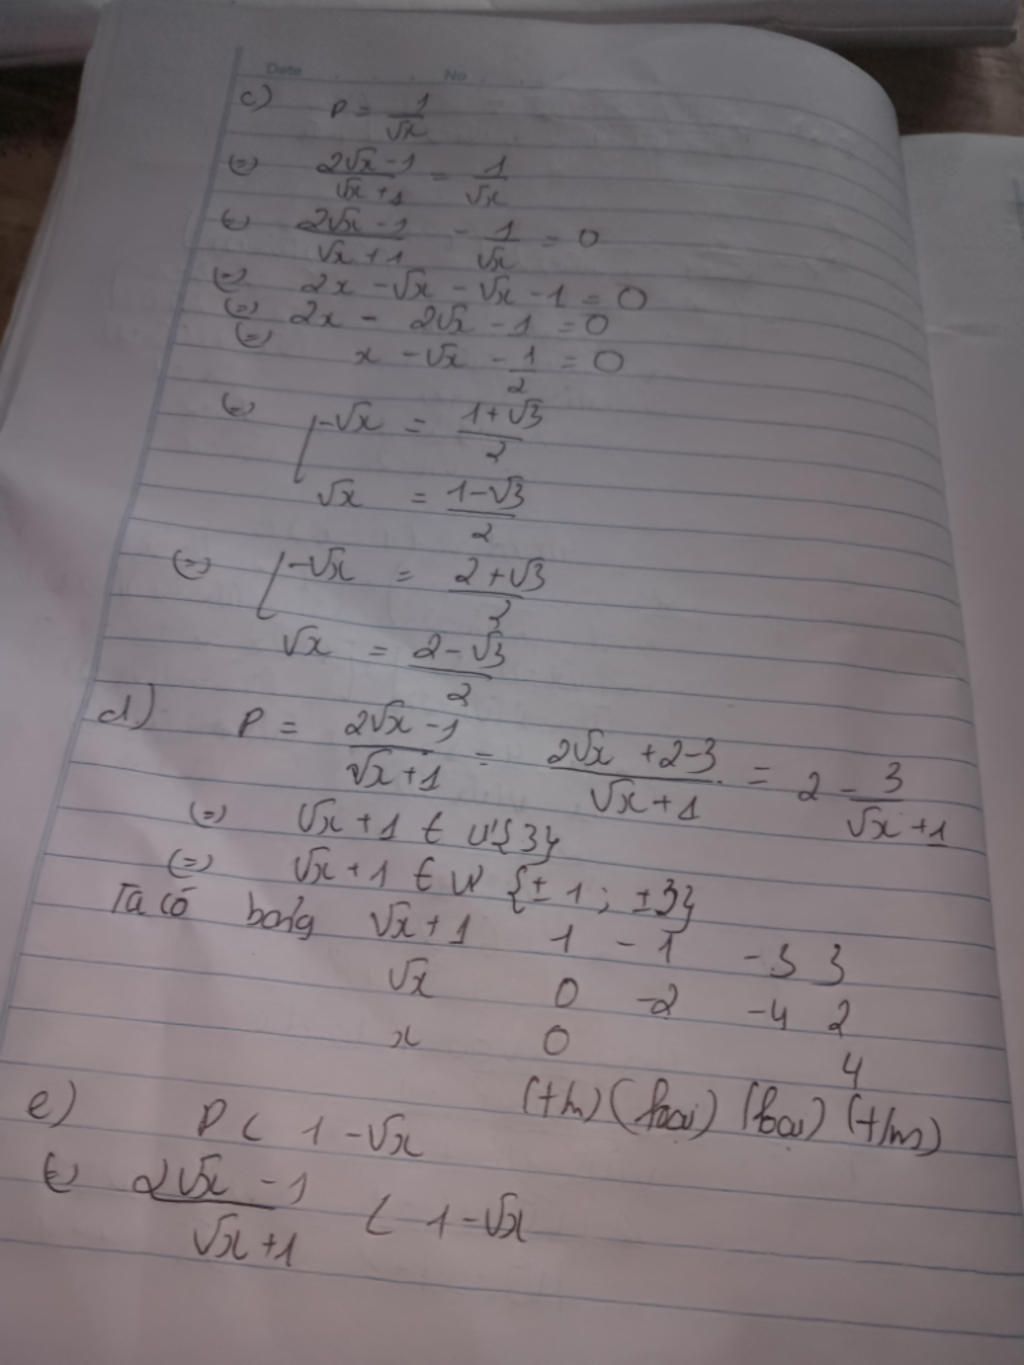 Date No
c) P = 1/√x
(=) (2√x - 1)/(√x + 1) = 1/√x
(=) (2√x - 1)/(√x + 1) - 1/√x = 0
(=) 2x - √x - √x - 1 = 0
(=) 2x - 2√x - 1 = 0
(=) x - √x - 1/2 = 0
(=) [-√x = (1+√3)/2
√x = (1-√3)/2
(=) [-√x = (2+√3)/2
√x = (2-√3)/2
d) P = (2√x - 1)/(√x + 1) = (2√x + 2-3)/(√x + 1) = 2 - 3/(√x + 1)
(=) √x + 1 ∈ Ư{3}
(=) √x + 1 ∈ Ư {±1; ±3}
Ta có bảng √x + 1 1 -1 -3 3
√x 0 -2 -4 2
x 0 4
(t/m) (loại) (loại) (t/m)
e) P < 1 - √x
(=) (2√x - 1)/(√x + 1) < 1 - √x